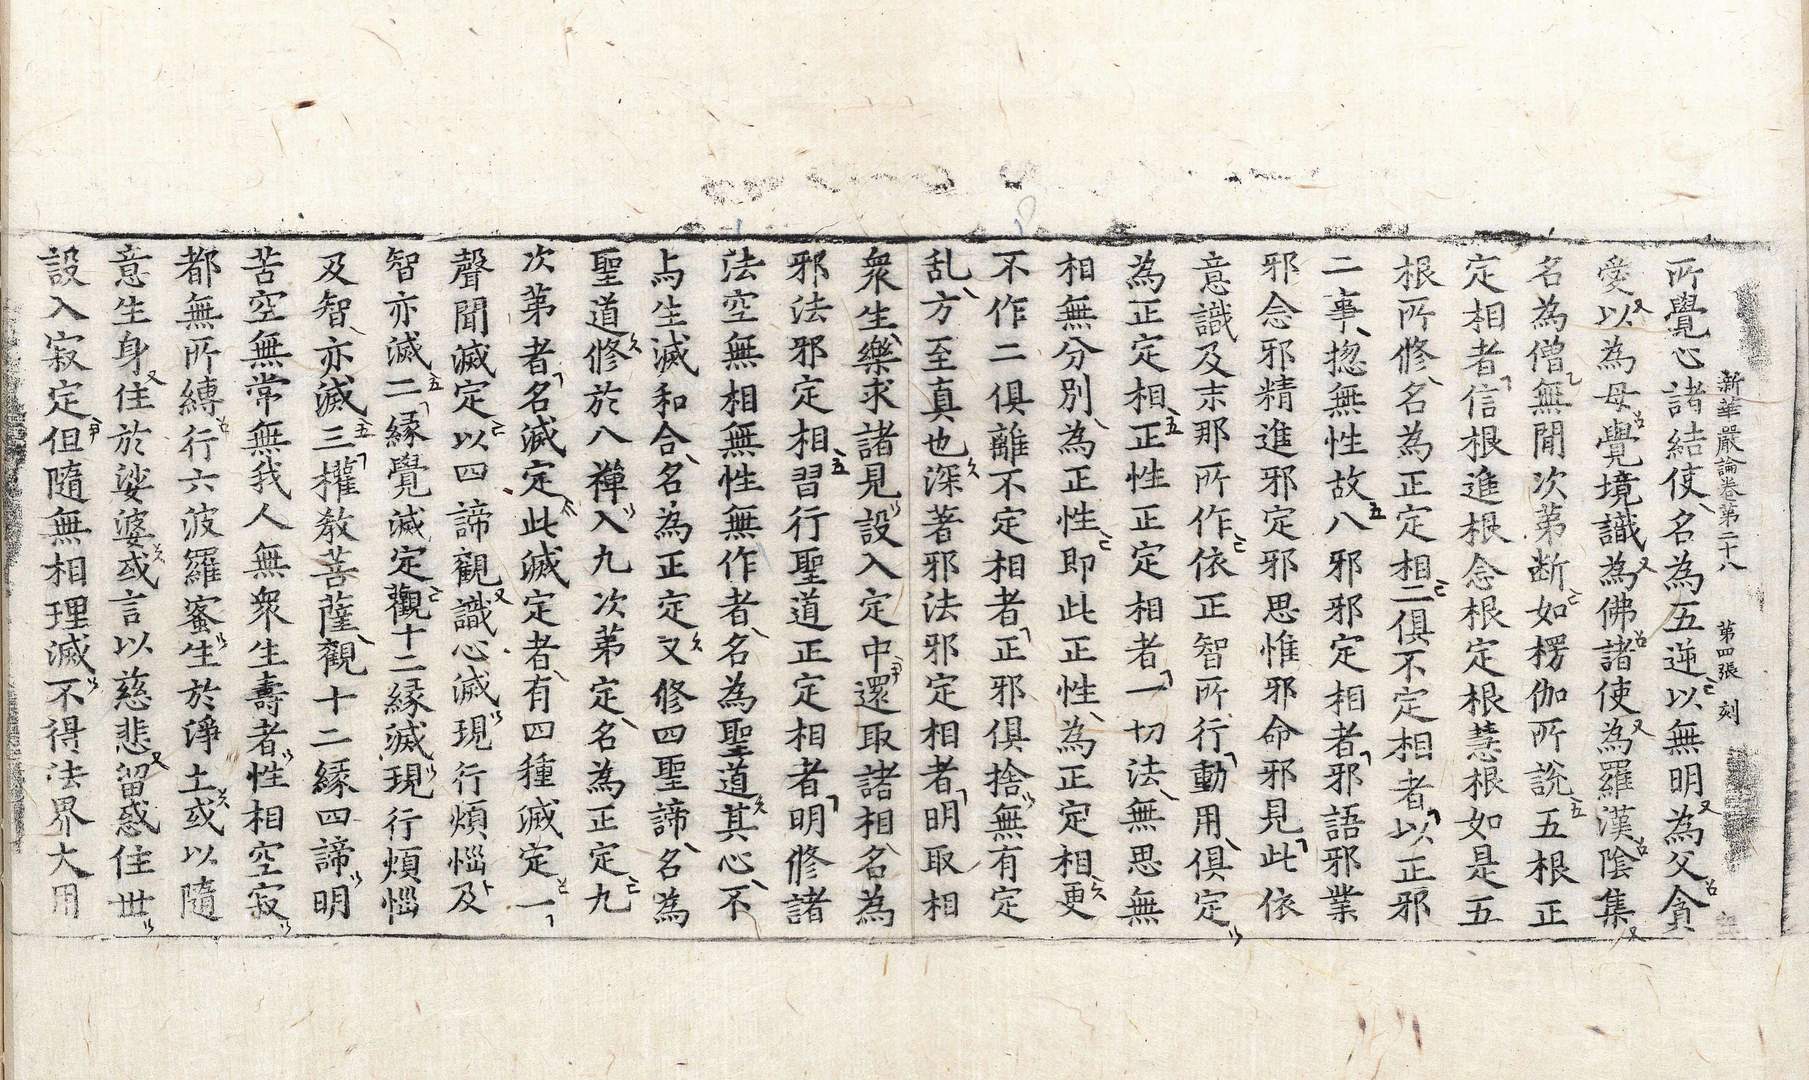 新華嚴論卷第二十八　第四張　刻
所覺心諸結使名為五逆以無明為父貪
愛以為母覺境識為佛諸使為羅漢陰集
名為僧無間次第断如楞伽所說五根正
定相者信根進根念根定根慧根如是五
根所修名為正定相二俱不定相者以正邪
二事揔無性故八邪邪定相者邪語邪業
邪念邪精進邪定邪思惟邪命邪見此依
意識及末那所作依正智所行動用俱定
為正定相正性正定相者一切法無思無
相無分別為正性即此正性為正定相更
不作二俱離不定相者正邪俱捨無有定
乱方至真也深著邪法邪定相者明取相
衆生樂求諸見設入定中還取諸相名為
邪法邪定相習行聖道正定相者明修諸
法空無相無性無作者名為聖道其心不
与生滅和合名為正定又修四聖諦名為
聖道修於八禪入九次第定名為正定九
次第者名滅定此滅定者有四種滅定一
聲聞滅定以四諦觀識心滅現行煩惱及
智亦滅二緣覺滅定觀十二緣滅現行煩惱
及智亦滅三權教菩薩觀十二緣四諦明
苦空無常無我人無衆生壽者性相空寂
都無所縛行六波羅蜜生於淨土或以隨
意生身住於娑婆或言以慈悲留惑住世
設入寂定但隨無相理滅不得法界大用